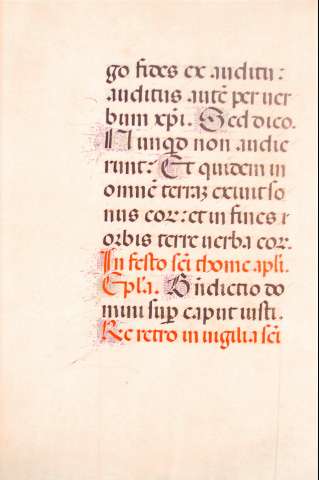 go fides ex auditu:
auditus autē per uer
bum xpi. Sed dico.
Nunqd non audie
runt: Et quidem in
omnē terraz exiuit so
nus eor: et in fines r
orbis terre uerba eor.
In festo sci thome apli.
Epl'a. Bn̄dictio do
mini sup caput iusti.
Re retro in uigilia sci